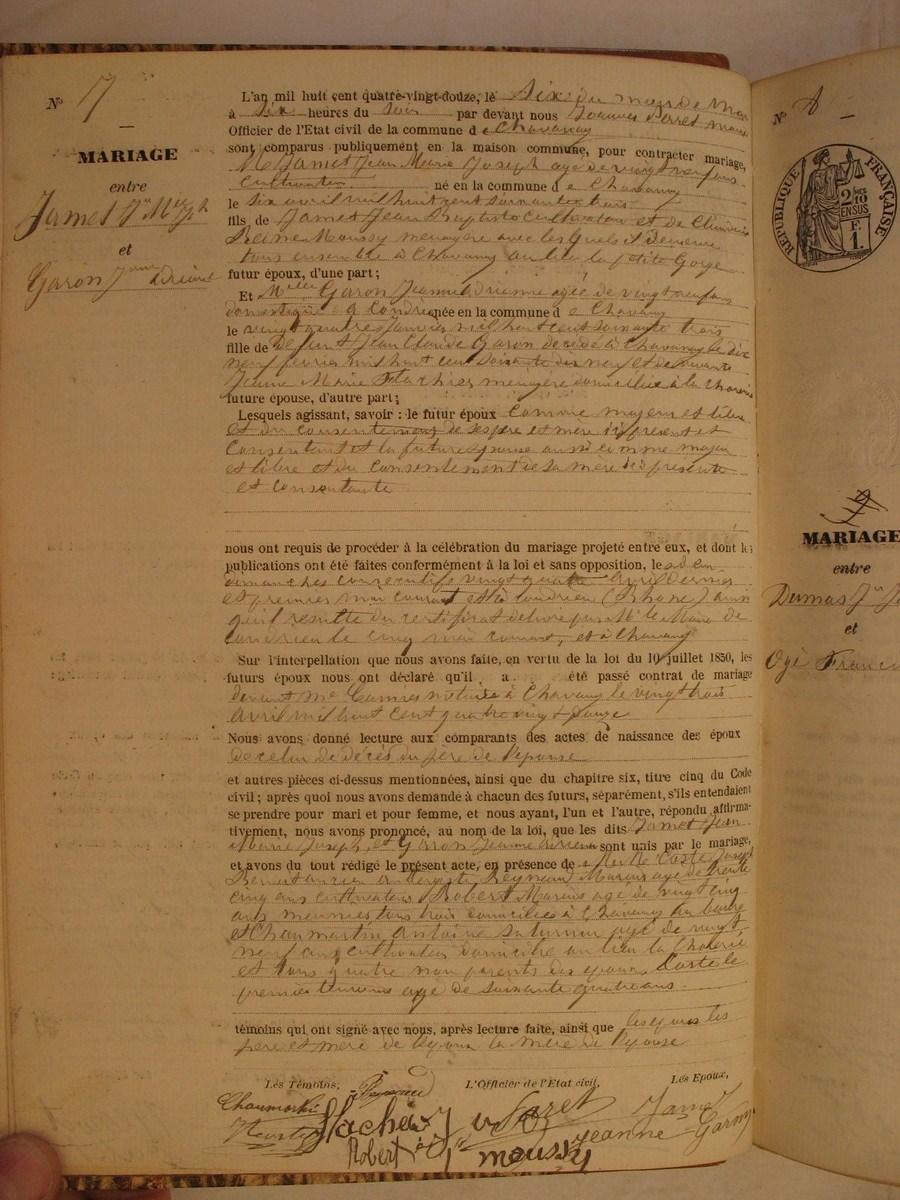 N° 7
MARIAGE
entre
Jamet Jn Mie Jph
et
Garon Jeanne Adrienne
L'an mil huit cent quatre-vingt-douze, le Six du mois de Mai
à Six heures du Soir par devant nous Joannes Sarret maire
Officier de l'Etat civil de la commune d e Chavanay
sont comparus publiquement en la maison commune, pour contracter mariage,
M. Jamet Jean Marie Joseph agé de vingt neuf ans
Cultivateur né en la commune d e Chavanay
le Six avril mil huit cent soixante trois
fils de Jamet Jean Baptiste cultivateur et de
Reine Moussy menagère avec lesquels il demeure
tous ensemble à Chavanay au lieu la petite Gorge
futur époux, d'une part;
Et Melle Garon Jeanne Adrienne agée de vingt neuf ans
domestique à Condrieu née en la commune d e Chavanay
le vingt quatre Janvier mil huit cent soixante trois
fille de défunt Jean Claude Garon décédé à Chavanay le dix
neuf février mil huit cent soixante dix neuf et de vivante
Jeanne Marie Flachier menagère domiciliée à la Chorerie
future épouse, d'autre part;
Lesquels agissant, savoir : le futur époux comme majeur et libre
et du consentement de ses père et mère ici présents et
Consentant et la future épouse aussi comme majeure
et libre et du consentement de sa mère ici présente
et consentante
nous ont requis de procéder à la célébration du mariage projeté entre eux, et dont les
publications ont été faites conformément à la loi et sans opposition, les deux
dimanches consécutifs vingt quatre avril dernier
et premier mai courant et à Condrieu (Rhône) ainsi
qu'il résulte du certificat délivré par Mr le Maire de
Condrieu le cinq mai courant, et à Chavanay
Sur l'interpellation que nous avons faite, en vertu de la loi du 10 juillet 1850, les
futurs époux nous ont déclaré qu'il a été passé contrat de mariage
devant Me notaire à Chavanay le vingt trois
avril mil huit cent quatre vingt douze
Nous avons donné lecture aux comparants des actes de naissance des époux
de celui de décès du père de l'épouse
et autres pièces ci-dessus mentionnées, ainsi que du chapitre six, titre cinq du Code
civil; après quoi nous avons demandé à chacun des futurs, séparément, s'ils entendaient
se prendre pour mari et pour femme, et nous ayant, l'un et l'autre, répondu affirma-
tivement, nous avons prononcé, au nom de la loi, que les dits Jamet Jean
Marie Joseph et Garon Jeanne Adrienne sont unis par le mariage,
et avons du tout rédigé le présent acte, en présence de Coste Joseph
ancien Reynaud Marius agé de trente
cinq ans cultivateur Robert Marius agé de vingt cinq
ans meunier tous trois domiciliés à Chavanay au bourg
et Chaumartin Antoine Saturnin agé de vingt
neuf ans cultivateur domicilié au lieu la Chorerie
et tous quatre non parents des époux. Coste le
premier témoin agé de soixante quatre ans
témoins qui ont signé avec nous, après lecture faite, ainsi que les époux les
père et mère de l'époux la mère de l'épouse
Les Témoins, L'Officier de l'Etat civil, Les Epoux,
Chaumartin Reynaud Sarret Jamet
Coste Flachier Jeanne Garon
Robert Moussy
N° 8
RÉPUBLIQUE FRANÇAISE
2/10 EN SUS
F. 1.
MARIAGE
entre
Dumas
et
Ogé